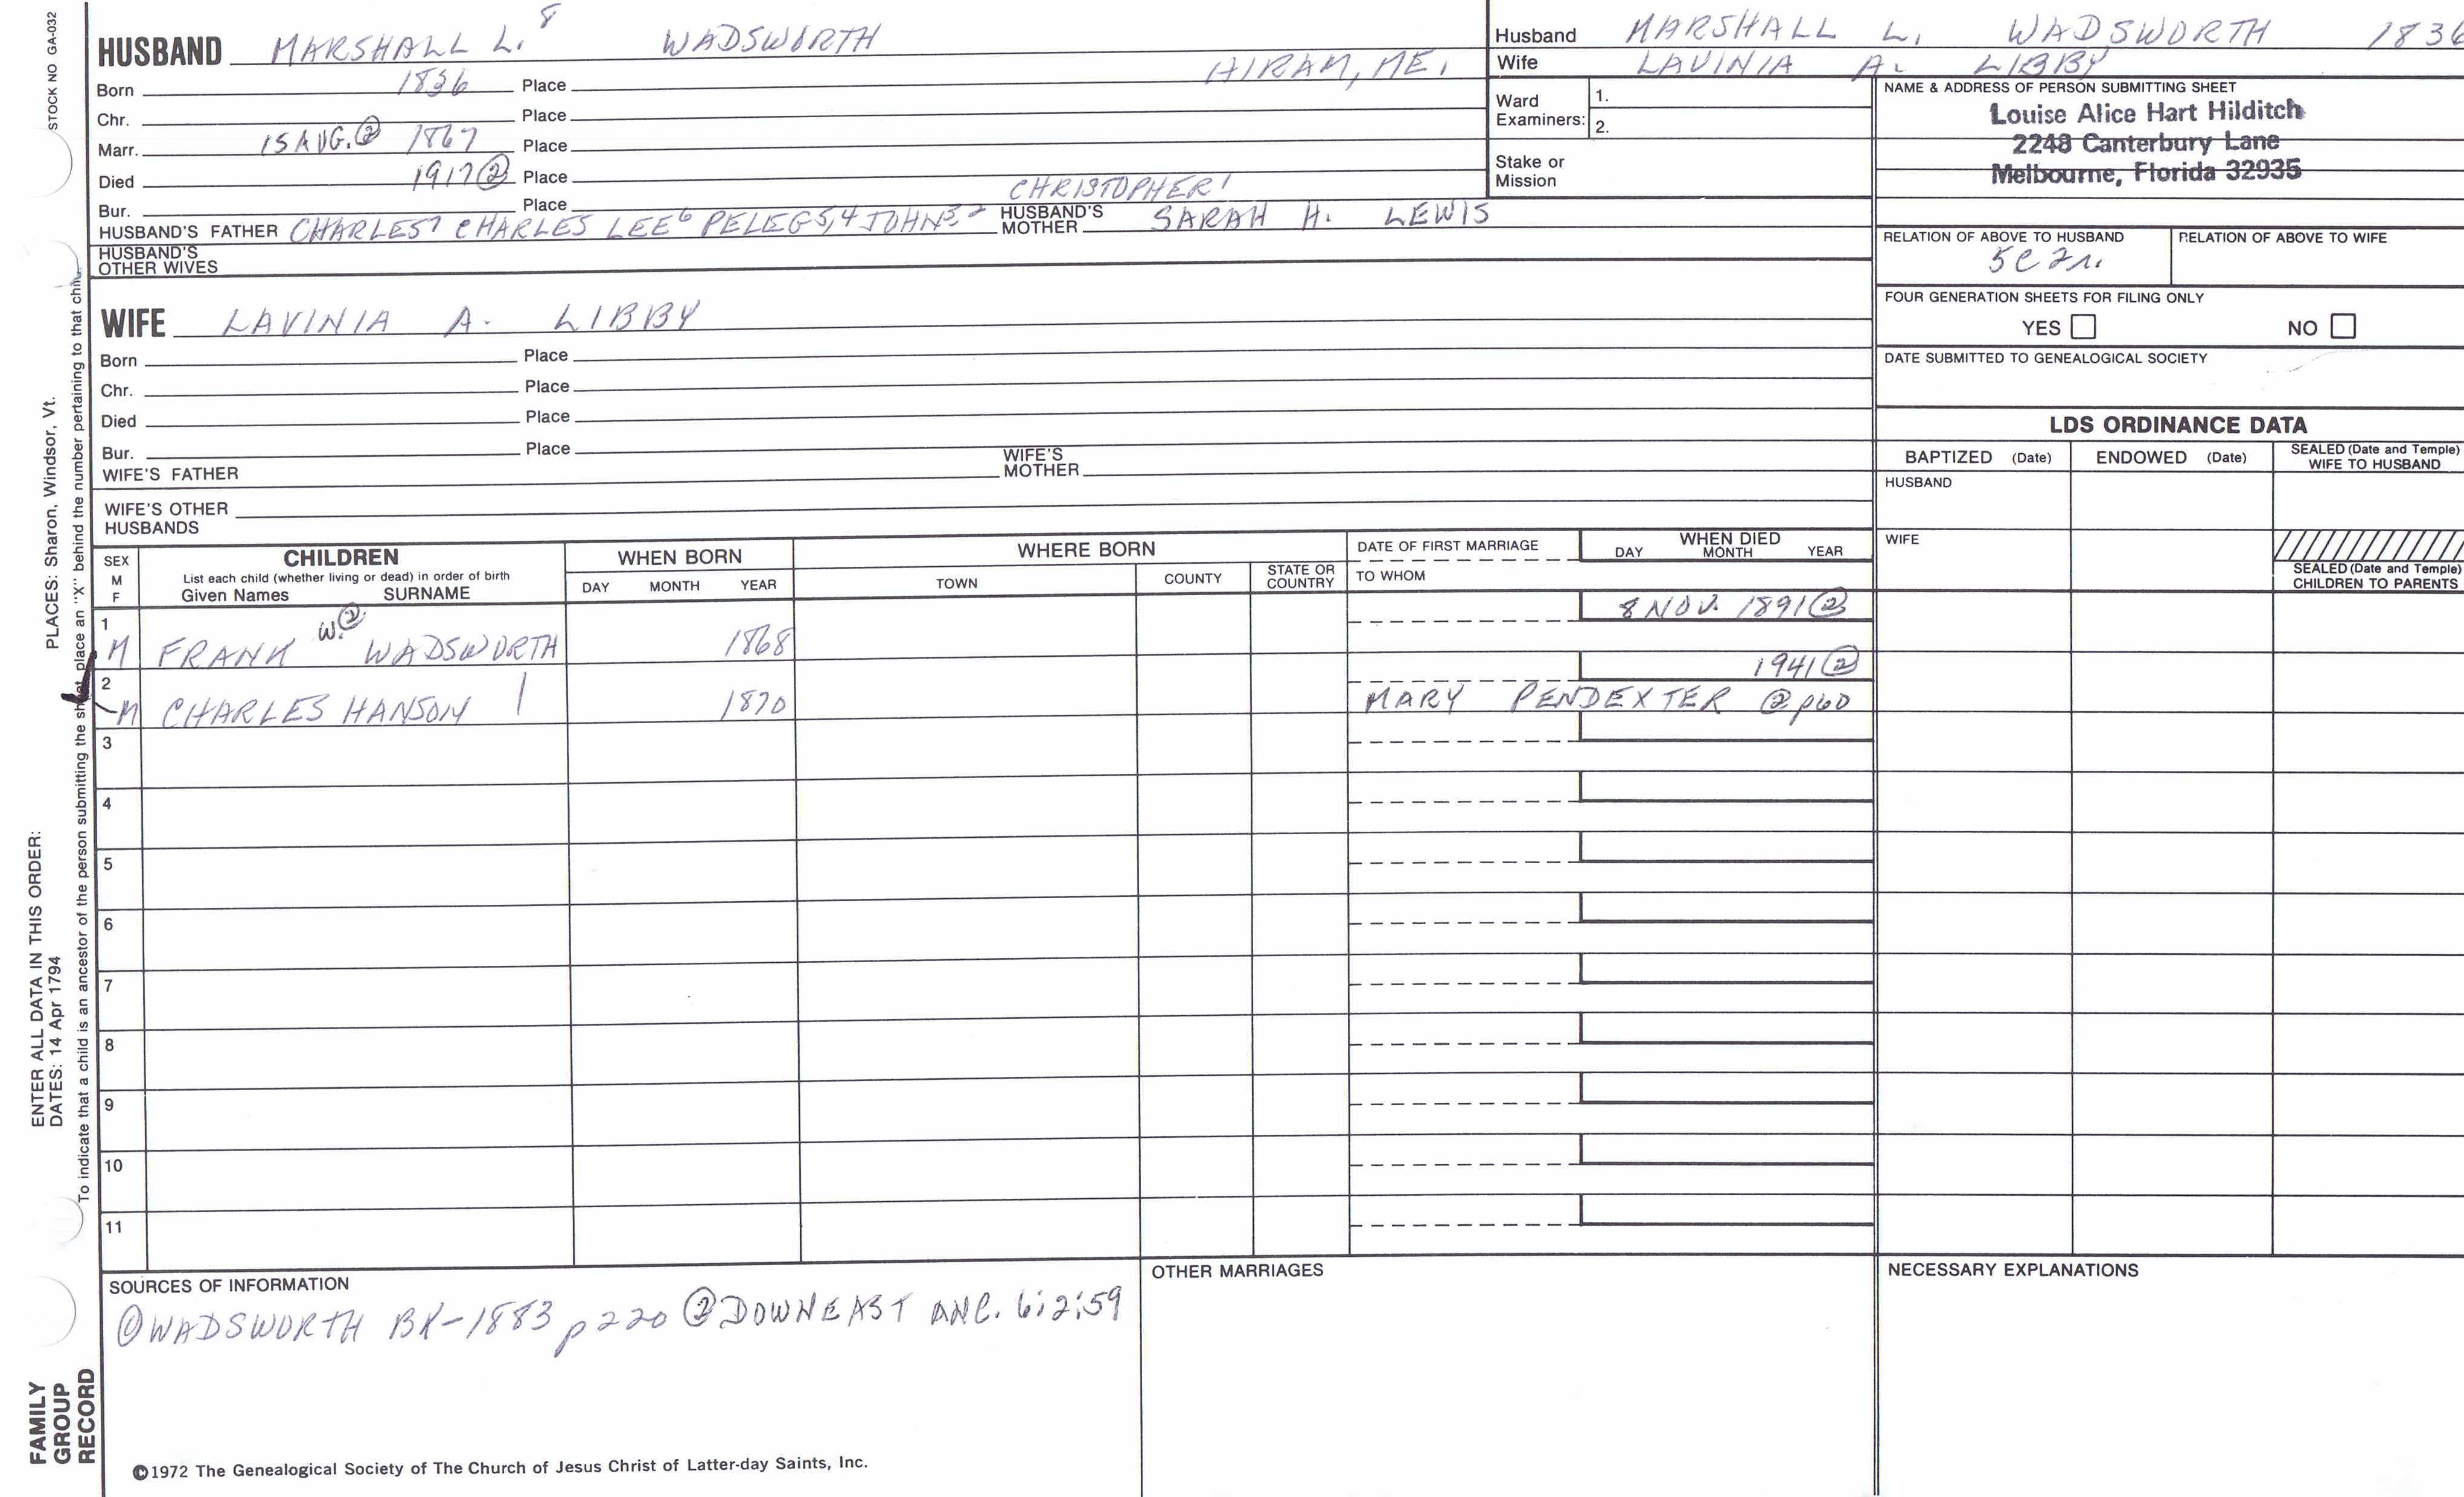 STOCK NO GA-032
HUSBAND MARSHALL L.8 WADSWORTH
Born 1836 Place HIRAM, ME.
Chr. Place
Marr. 15 AUG.② 1867 Place
Died 1917② Place
Bur. Place CHRISTOPHER1
HUSBAND'S FATHER CHARLES7 CHARLES LEE6 PELEG5,4 JOHN3,2 HUSBAND'S MOTHER SARAH H. LEWIS
HUSBAND'S OTHER WIVES
Husband MARSHALL L. WADSWORTH 1836
Wife LAVINIA A. LIBBY
Ward Examiners: 1.
2.
Stake or Mission
NAME & ADDRESS OF PERSON SUBMITTING SHEET
Louise Alice Hart Hilditch
2248 Canterbury Lane
Melbourne, Florida 32935
RELATION OF ABOVE TO HUSBAND RELATION OF ABOVE TO WIFE
5C2r.
FOUR GENERATION SHEETS FOR FILING ONLY
YES NO
DATE SUBMITTED TO GENEALOGICAL SOCIETY
WIFE LAVINIA A. LIBBY
Born Place
Chr. Place
Died Place
Bur. Place
WIFE'S FATHER WIFE'S MOTHER
WIFE'S OTHER HUSBANDS
LDS ORDINANCE DATA
BAPTIZED (Date) ENDOWED (Date) SEALED (Date and Temple) WIFE TO HUSBAND
HUSBAND
WIFE
SEALED (Date and Temple) CHILDREN TO PARENTS
SEX M F
CHILDREN
List each child (whether living or dead) in order of birth
Given Names SURNAME
WHEN BORN
DAY MONTH YEAR
WHERE BORN
TOWN COUNTY STATE OR COUNTRY
DATE OF FIRST MARRIAGE
TO WHOM
WHEN DIED
DAY MONTH YEAR
1 8 NOV. 1891②
M FRANK W.② WADSWORTH 1868
2 1941②
M CHARLES HANSON 1870 MARY PENDEXTER ② p60
3
4
5
6
7
8
9
10
11
SOURCES OF INFORMATION
① WADSWORTH BK-1883 p220 ② DOWNEAST ANC. 6:2:59
OTHER MARRIAGES
NECESSARY EXPLANATIONS
©1972 The Genealogical Society of The Church of Jesus Christ of Latter-day Saints, Inc.
FAMILY GROUP RECORD
ENTER ALL DATA IN THIS ORDER:
DATES: 14 Apr 1794
PLACES: Sharon, Windsor, Vt.
To indicate that a child is an ancestor of the person submitting the sheet, place an "X" behind the number pertaining to that child.